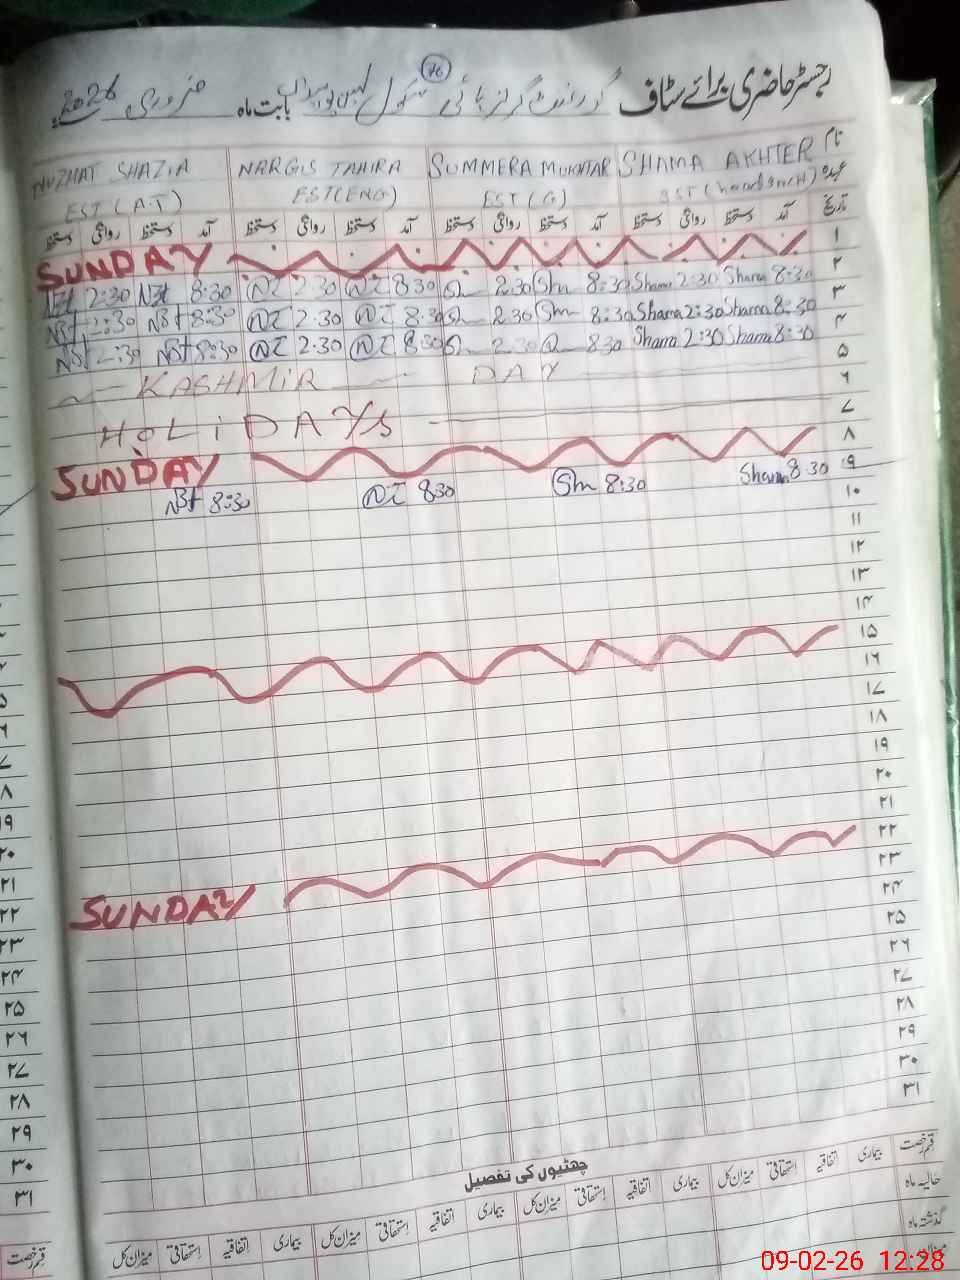 76
رجسٹر حاضری برائے سٹاف گورنمنٹ گرلز ہائی سکول بابت ماہ فروری 2026ء
نام
NUZHAT SHAZIA NARGIS TAHIRA SUMMERA MUKHTAR SHAMA AKHTER
عہدہ
EST (A.T) EST(ENG) EST (G)
تاریخ آمد دستخط روانگی دستخط آمد دستخط روانگی دستخط آمد دستخط روانگی دستخط آمد دستخط روانگی دستخط
SUNDAY ۱
Nst 2:30 Nst 8:30 NT 2:30 NT 8:30 Sm 2:30 Sm 8:30 Shama 2:30 Shama 8:30 ۲
Nst 2:30 Nst 8:30 NT 2:30 NT 8:30 Sm 2:30 Sm 8:30 Shama 2:30 Shama 8:30 ۳
Nst 2:30 Nst 8:30 NT 2:30 NT 8:30 Sm 2:30 830 Shama 2:30 Shama 8:30 ۴
KASHMIR DAY ۵
۶
HOLiDAYS ۷
SUNDAY ۸
Nst 8:30 NT 830 Sm 8:30 Shama 8:30 ۹
۱۰
۱۱
۱۲
۱۳
۱۴
۱۵
۱۶
۱۷
۱۸
۱۹
۲۰
۲۱
SUNDAY ۲۲
۲۳
۲۴
۲۵
۲۶
۲۷
۲۸
۲۹
۳۰
۳۱
چھٹیوں کی تفصیل
قسم رخصت بیماری اتفاقیہ استحقاقی میزان کل بیماری اتفاقیہ استحقاقی میزان کل بیماری اتفاقیہ استحقاقی میزان کل بیماری اتفاقیہ استحقاقی میزان کل
حالیہ ماہ
گذشتہ ماہ
میزان
۱۹
۲۰
۲۱
۲۲
۲۳
۲۴
۲۵
۲۶
۲۷
۲۸
۲۹
۳۰
۳۱
قسم رخصت
09-02-26 12:28